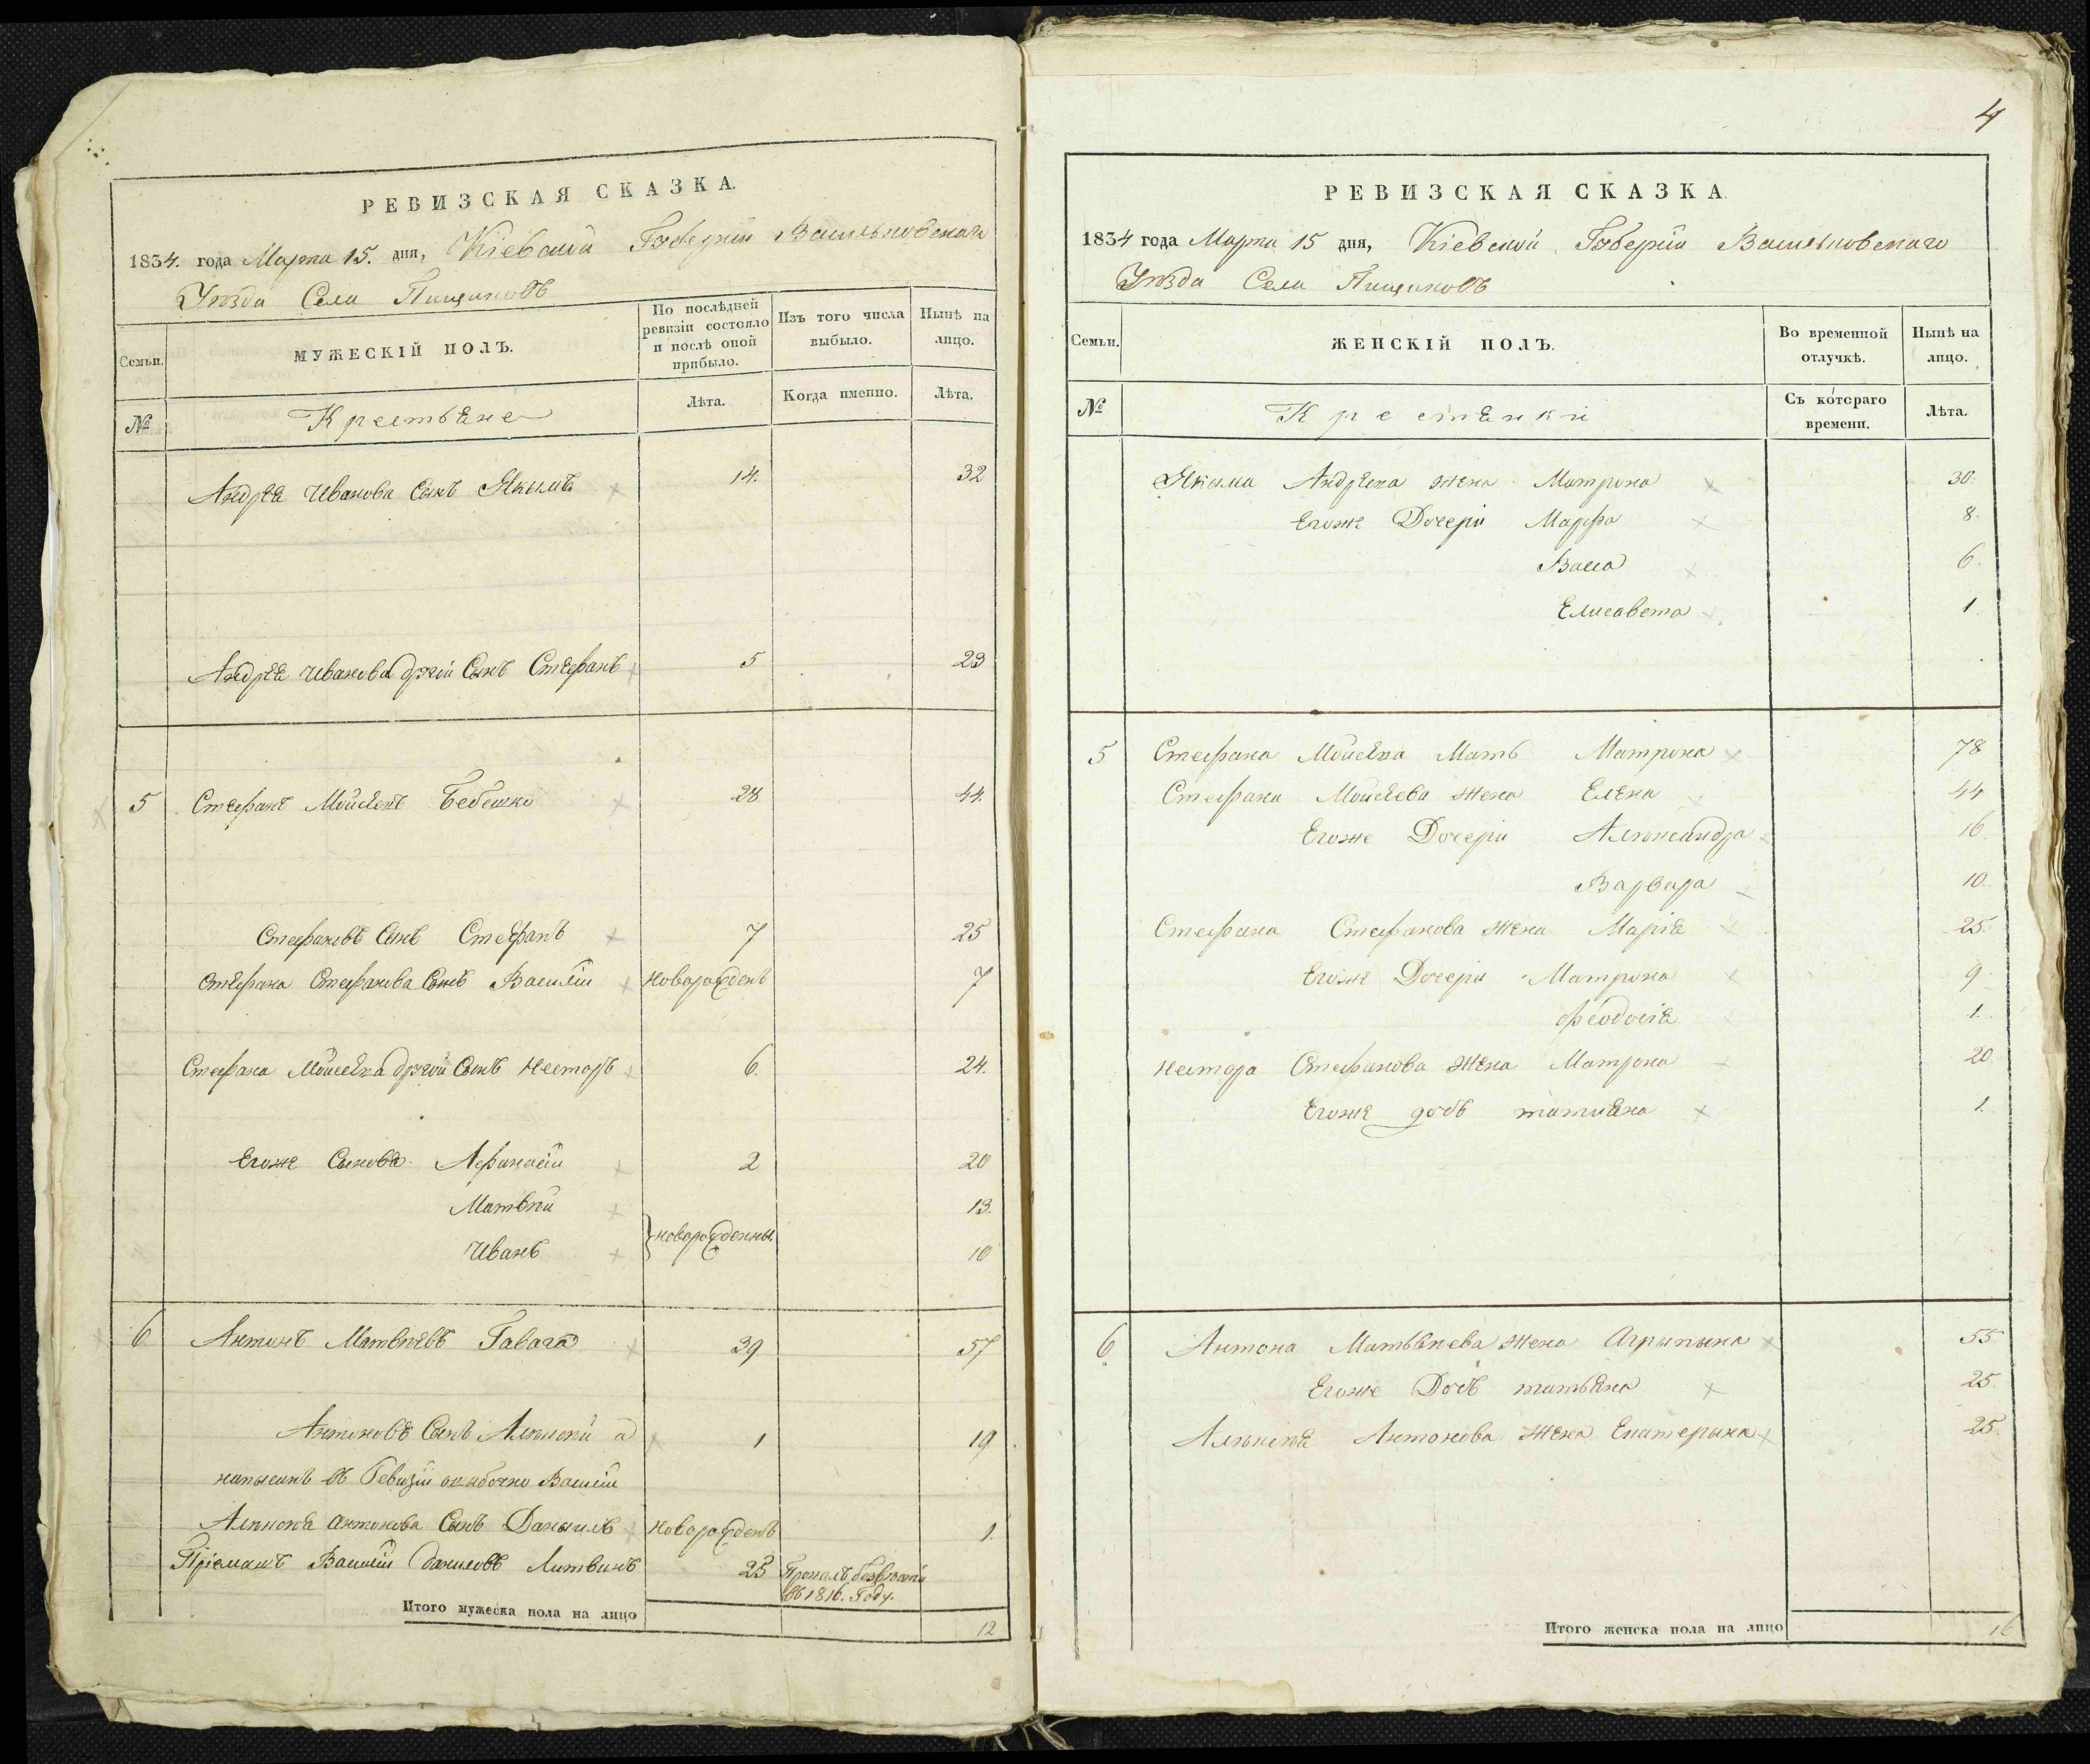 РЕВИЗСКАЯ СКАЗКА.
1834. года Марта 15. дня, Кіевской Губерніи Васильковскаго
Уезда Села Пищиковъ
Семьи.
МУЖЕСКІЙ ПОЛЪ.
По послѣдней ревизіи состояло и послѣ оной прибыло.
Изъ того числа выбыло.
Нынѣ на лицо.
№
Крестьяне
Лѣта.
Когда именно.
Лѣта.
Андрея Иванова Сынъ Якымъ 14. 32
Андрея Иванова другой Сынъ Стефанъ 5 23
5 Стефанъ Мойсеевъ Бебешко 28 44.
Стефановъ Сынъ Стефанъ 7 25
Стефана Стефанова Сынъ Василій новорожденъ 7
Стефана Мойсеева другой Сынъ Несторъ 6. 24.
Егоже Сыновя Афанасій 2 20
Матвѣй 13.
Иванъ новорожденны. 10
6 Антонъ Матвѣевъ Гавага 39 57
Антоновъ Сынъ Алексѣй а 1 19
написанъ въ Ревизіи ошибочно Василій
Алексѣя Антонова Сынъ Даныилъ новорожденъ 1.
Пріемышъ Василій Даниловъ Литвинъ 25 Пропалъ безъвѣсти
въ 1816. Году.
Итого мужеска пола на лицо 12
4
РЕВИЗСКАЯ СКАЗКА.
1834 года Марта 15 дня, Кіевской Губерніи Васильковскаго
Уезда Села Пищиковъ
Семьи.
ЖЕНСКІЙ ПОЛЪ.
Во временной отлучкѣ.
Нынѣ на лицо.
№
Крестянки
Съ котораго времени.
Лѣта.
Якима Андреева жена Матрона 30.
Егоже Дочери Марфа 8.
Васса 6.
Елисавета 1
5 Стефана Мойсеева Мать Матрона 78
Стефана Мойсеева жена Елена 44
Егоже Дочери Александра 16.
Варвара 10.
Стефана Стефанова жена Марія 25.
Егоже Дочери Матрона 9
Феодосія 1.
Нестора Стефанова жена Матрона 20
Егоже дочь татияна 1.
6 Антона Матьвѣева жена Агрыпына 55
Егоже Дочь татьяна 25.
Алексѣя Антонова жена Екатерына 25.
Итого женска пола на лицо 16